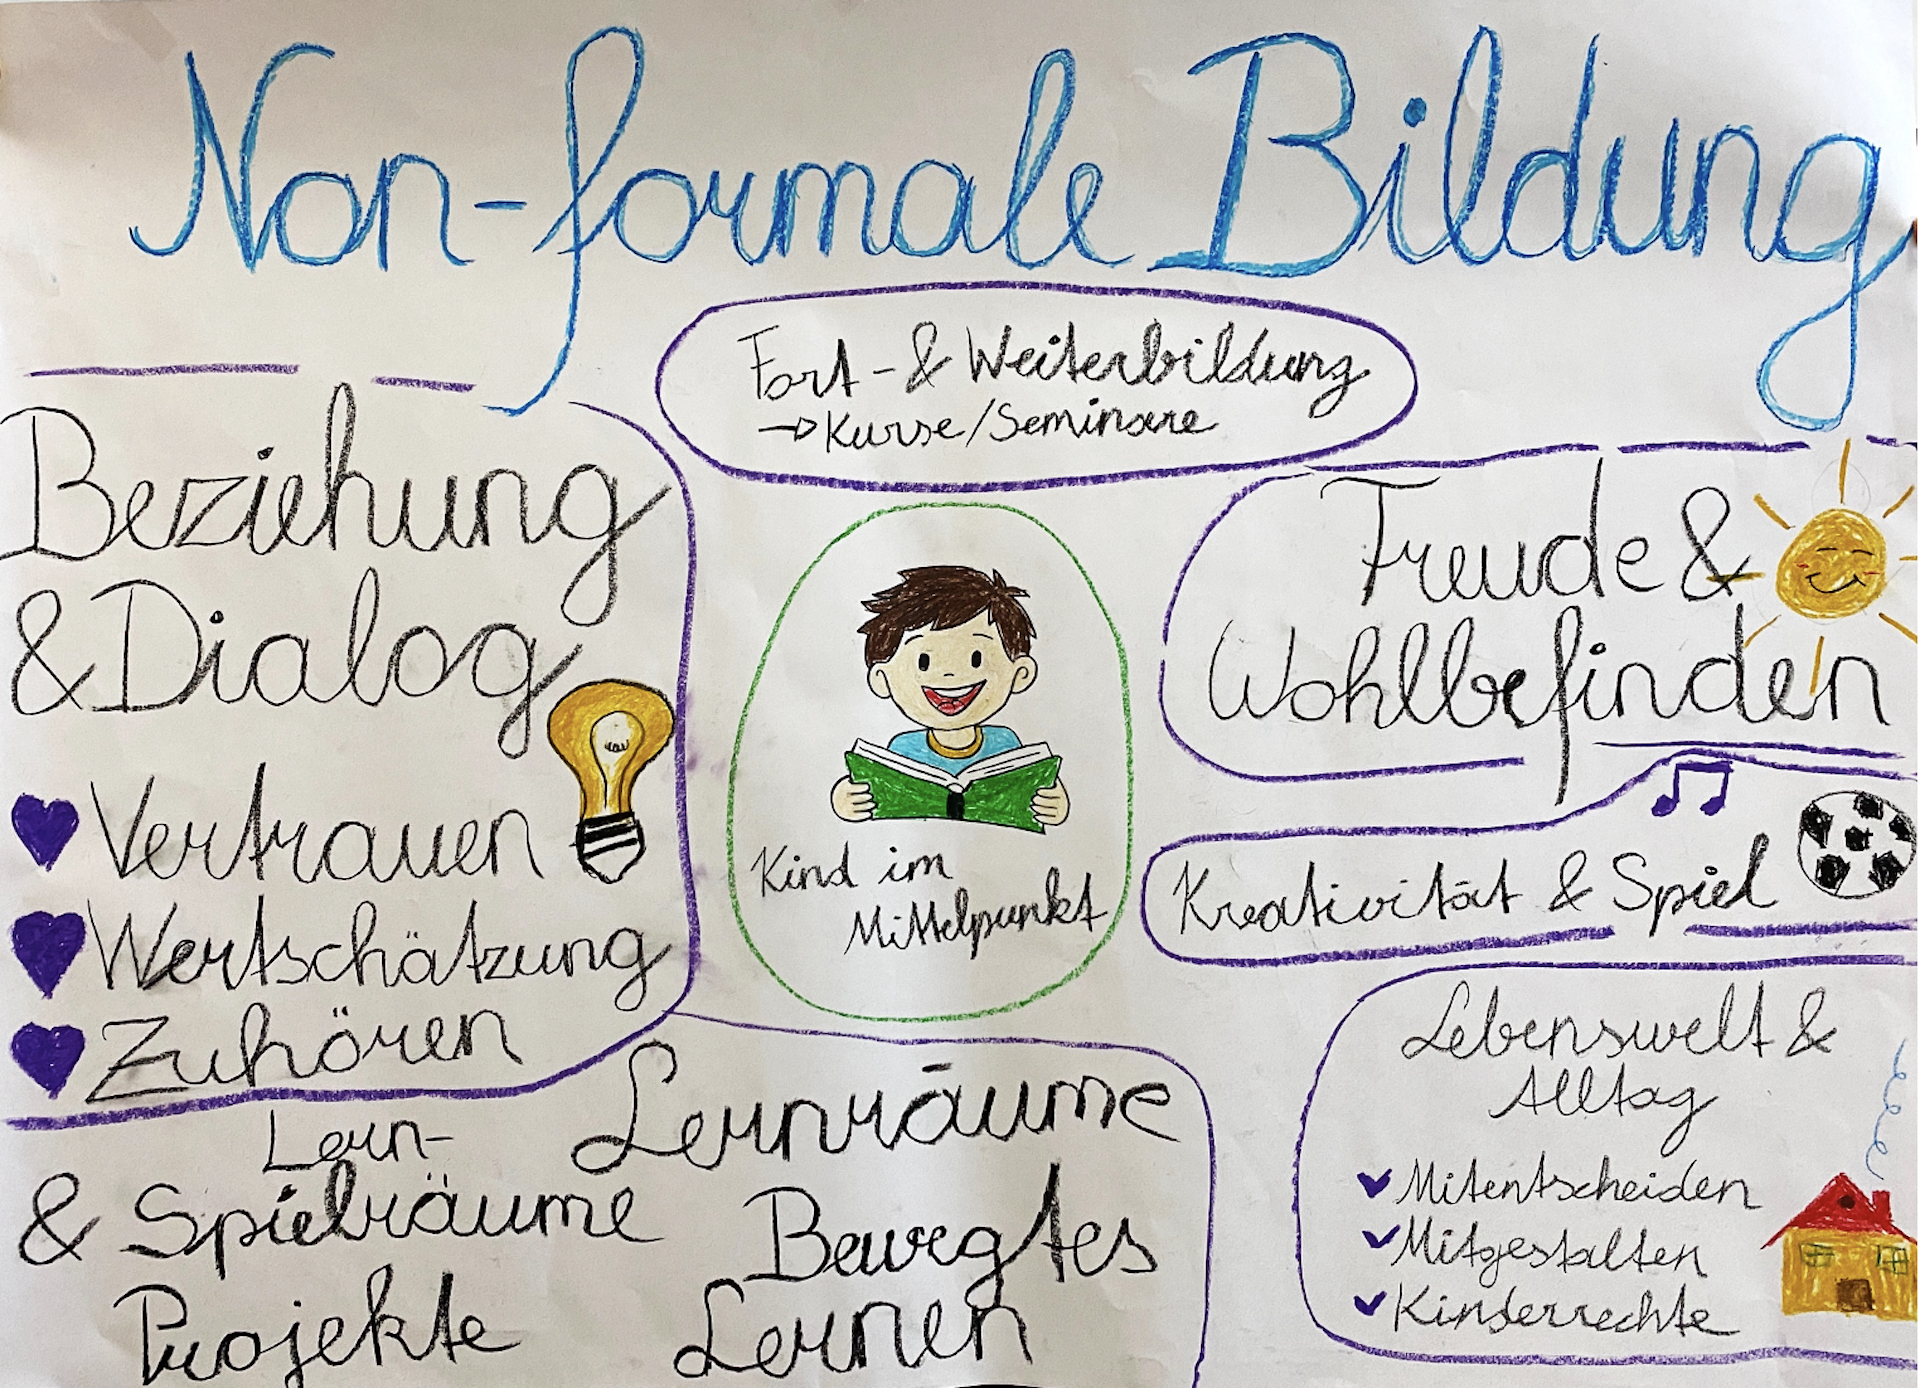 Non-formale Bildung
Fort- & Weiterbildung
→ Kurse/Seminare
Beziehung
& Dialog
Vertrauen
Wertschätzung
Zuhören
Kind im
Mittelpunkt
Freude &
Wohlbefinden
Kreativität & Spiel
Lern-
& Spielräume
Projekte
Lernräume
Bewegtes
Lernen
Lebenswelt &
Alltag
Mitentscheiden
Mitgestalten
Kinderrechte